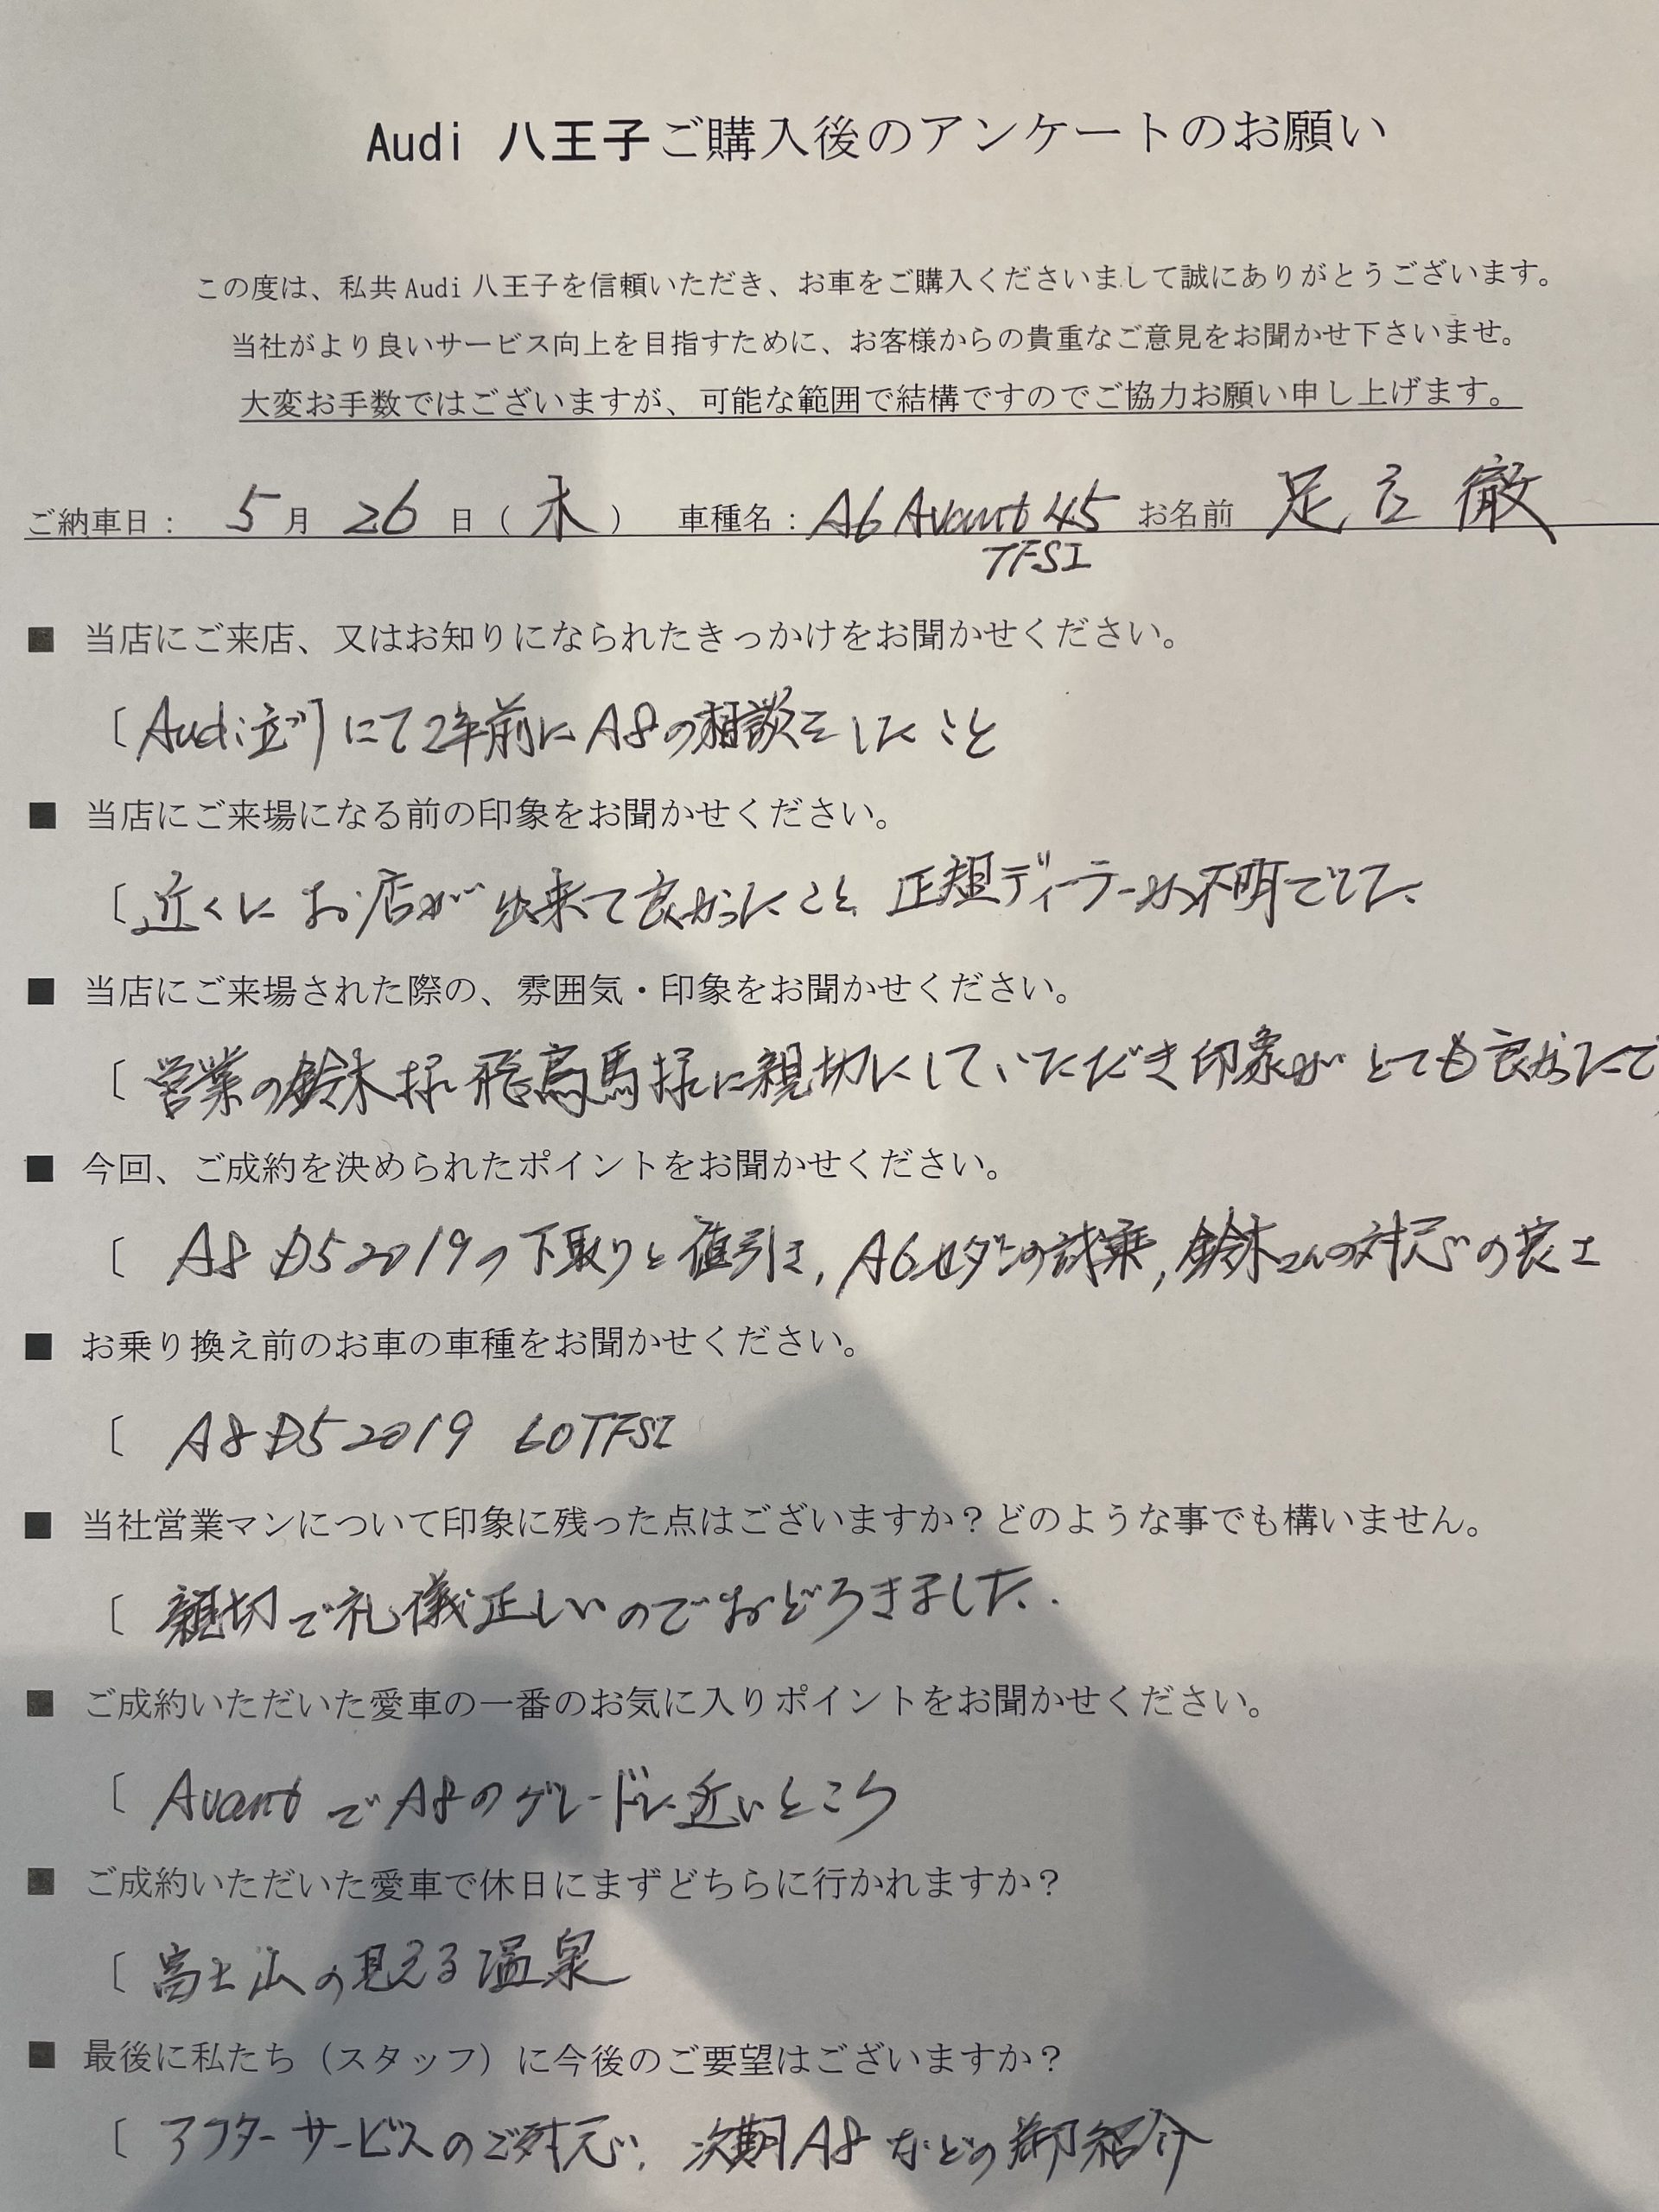 Audi 八王子ご購入後のアンケートのお願い
この度は、私共 Audi 八王子を信頼いただき、お車をご購入くださいまして誠にありがとうございます。
当社がより良いサービス向上を目指すために、お客様からの貴重なご意見をお聞かせ下さいませ。
大変お手数ではございますが、可能な範囲で結構ですのでご協力お願い申し上げます。
ご納車日： 5月 26 日（ 木 ） 車種名：A6 Avant 45 お名前 足立 徹
TFSI
■ 当店にご来店、又はお知りになられたきっかけをお聞かせください。
〔 Audi にて2年前に A8の相談をしたこと
■ 当店にご来場になる前の印象をお聞かせください。
〔 近くに お店が出来て良かったこと 正規ディーラーか不明でした
■ 当店にご来場された際の、雰囲気・印象をお聞かせください。
〔 営業の鈴木様 馬様に親切にしていただき印象がとても良かったで
■ 今回、ご成約を決められたポイントをお聞かせください。
〔 A8 D5 2019の下取りと値引き, A6セダンの試乗, 鈴木さんの対応の良さ
■ お乗り換え前のお車の車種をお聞かせください。
〔 A8 D5 2019 60TFSI
■ 当社営業マンについて印象に残った点はございますか？どのような事でも構いません。
〔 親切で礼儀正しいのでおどろきました.
■ ご成約いただいた愛車の一番のお気に入りポイントをお聞かせください。
〔 Avant で A8のグレードに近いところ
■ ご成約いただいた愛車で休日にまずどちらに行かれますか？
〔 富士山の見える温泉
■ 最後に私たち（スタッフ）に今後のご要望はございますか？
〔 アフターサービスのご対応, 次期A8などの御紹介